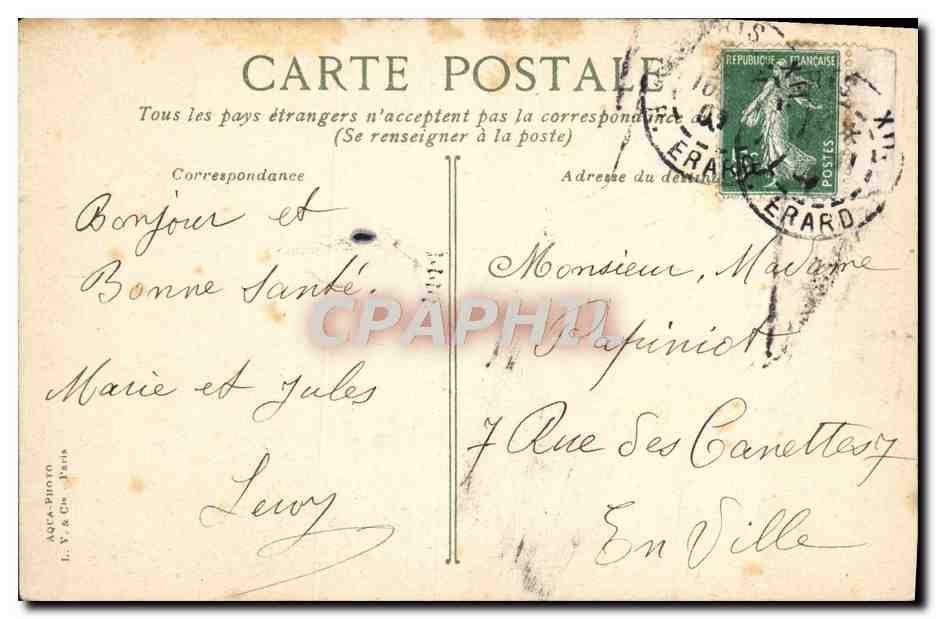 CARTE POSTALE
Tous les pays étrangers n'acceptent pas la correspondance
(Se renseigner à la poste)
Correspondance
Adresse du
REPUBLIQUE FRANÇAISE
POSTES
XII
ERARD
ERARD
Bonjour et
Bonne Santé.
Marie et Jules
Lewy
Monsieur, Madame
Papiniot
7 Rue des Canettes 7
En Ville
CPAPHIL
AQUA-PHOTO
L. V. & Cie Paris